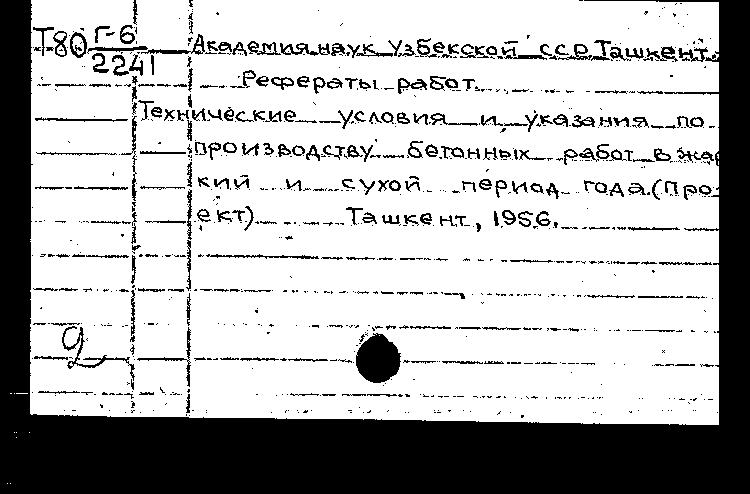 Т80 Г-6
2241
Академия наук Узбекской ССР Ташкент.
Рефераты работ.
Технические условия и указания по
производству бетонных работ в жар
кий и сухой период года. (Про-
ект) Ташкент, 1956.
2